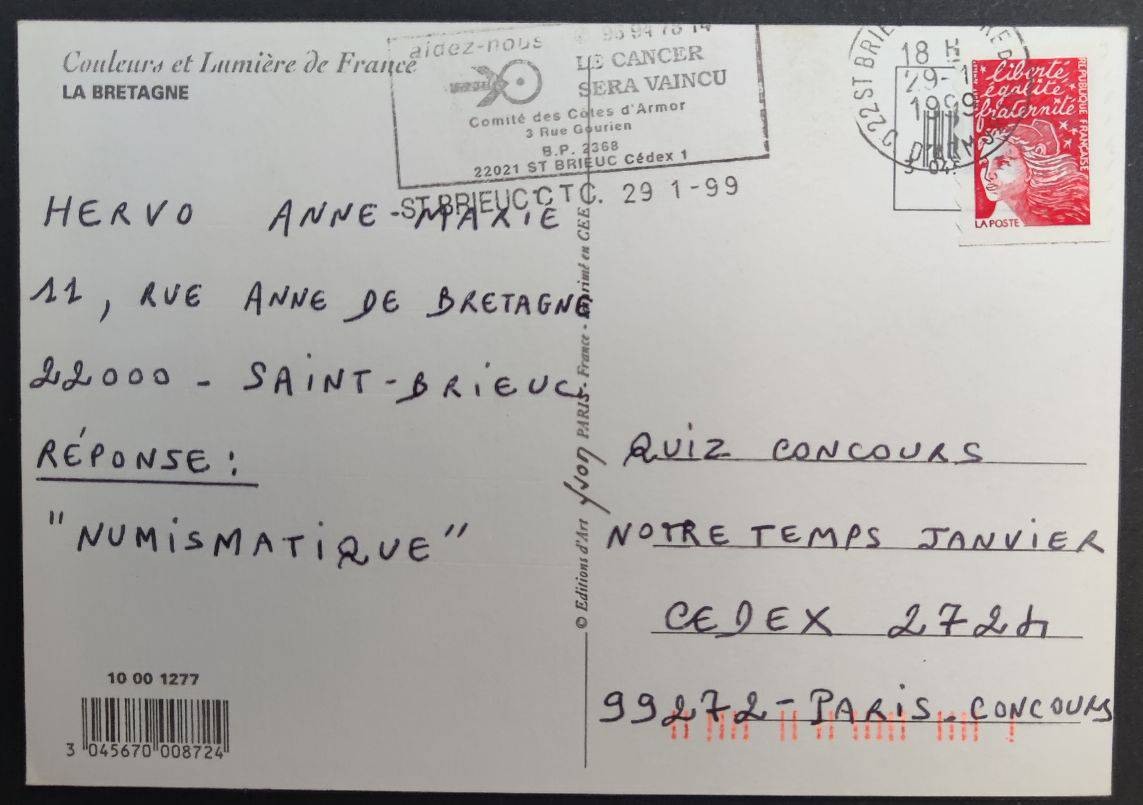 Couleurs et Lumière de France
LA BRETAGNE
aidez-nous
LE CANCER
SERA VAINCU
Comité des Côtes d'Armor
3 Rue Gourien
B.P. 2368
22021 ST BRIEUC Cédex 1
ST BRIEUC CTC. 29 1-99
18 H
29-1
1999
liberté,
égalité,
fraternité
RÉPUBLIQUE FRANÇAISE
LA POSTE
HERVO ANNE-MARIE
11, RUE ANNE DE BRETAGNE
22000 - SAINT-BRIEUC
RÉPONSE :
"NUMISMATIQUE"
10 00 1277
3 045670 008724
© Editions d'Art Yvon PARIS - France - Imprimé en CEE
QUIZ CONCOURS
NOTRE TEMPS JANVIER
CEDEX 2724
99272 - PARIS - CONCOURS